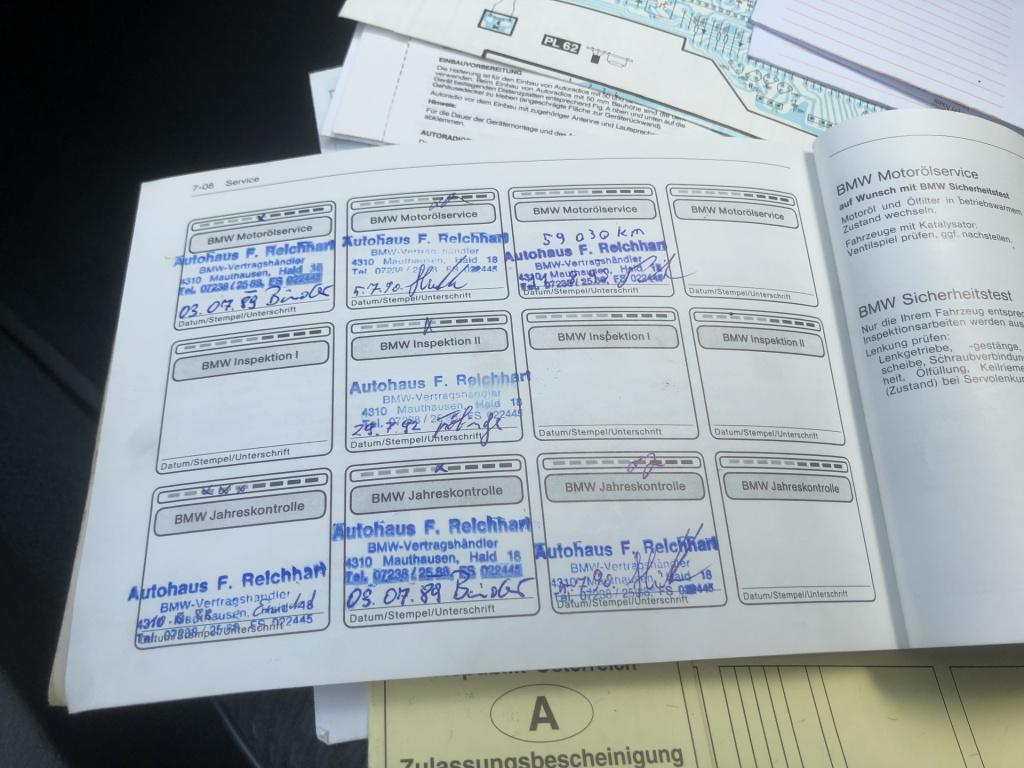 PL 62
EINBAUVORBEREITUNG
Die Halterung ist für den Einbau von Autoradios mit 50
verwenden. Beim Einbau von Autoradios mit 50 mm Bauhöhe sind die dem
Gerät beiliegenden Distanzplatten entsprechend Fig. A oben und unten auf die
Gehäusedeckel zu kleben (angeschrägte Fläche zur Geräterückwand).
Autoradio vor dem Einbau mit zugehöriger Antenne und
abklemmen.
Hinweis:
Für die Dauer der Gerätemontage und des
AUTORADIO
7-08 Service
BMW Motorölservice
Autohaus F. Reichhart
BMW-Vertragshändler
4310 Mauthausen, Hald 18
Tel. 07238 / 25 88, FS 022445
03.07.89
Datum/Stempel/Unterschrift
BMW Motorölservice
Autohaus F. Reichhart
BMW-Vertragshändler
4310 Mauthausen, Hald 18
Tel. 07238 / 25 88, FS 022445
5.7.90
Datum/Stempel/Unterschrift
BMW Motorölservice
59 030 km
Autohaus F. Reichhart
BMW-Vertragshändler
4310 Mauthausen, Hald 18
Tel. 07238 / 25 88, FS 022445
Datum/Stempel/Unterschrift
BMW Motorölservice
Datum/Stempel/Unterschrift
BMW Inspektion I
Datum/Stempel/Unterschrift
BMW Inspektion II
Autohaus F. Reichhart
BMW-Vertragshändler
4310 Mauthausen, Hald 18
Tel. 07238 / 25 88, FS 022445
Datum/Stempel/Unterschrift
BMW Inspektion I
Datum/Stempel/Unterschrift
BMW Inspektion II
Datum/Stempel/Unterschrift
BMW Jahreskontrolle
Autohaus F. Reichhart
BMW-Vertragshändler
4310 Mauthausen, Hald 18
Tel. 07238 / 25 88, FS 022445
Datum/Stempel/Unterschrift
BMW Jahreskontrolle
Autohaus F. Reichhart
BMW-Vertragshändler
4310 Mauthausen, Hald 18
Tel. 07238 / 25 88, FS 022445
03.07.89
Datum/Stempel/Unterschrift
BMW Jahreskontrolle
Autohaus F. Reichhart
BMW-Vertragshändler
4310 Mauthausen, Hald 18
Tel. 07238 / 25 88, FS 022445
Datum/Stempel/Unterschrift
BMW Jahreskontrolle
Datum/Stempel/Unterschrift
BMW Motorölservice
auf Wunsch mit BMW Sicherheitstest
Motoröl und Ölfilter in betriebswarmem
Zustand wechseln.
Fahrzeuge mit Katalysator:
Ventilspiel prüfen, ggf. nachstellen,
BMW Sicherheitstest
Nur die Ihrem Fahrzeug
Inspektionsarbeiten werden
Lenkung prüfen:
Lenkgetriebe, -gestänge,
scheibe,
heit, Ölfüllung,
(Zustand) bei
Republik Österreich
A
Zulassungsbescheinigung